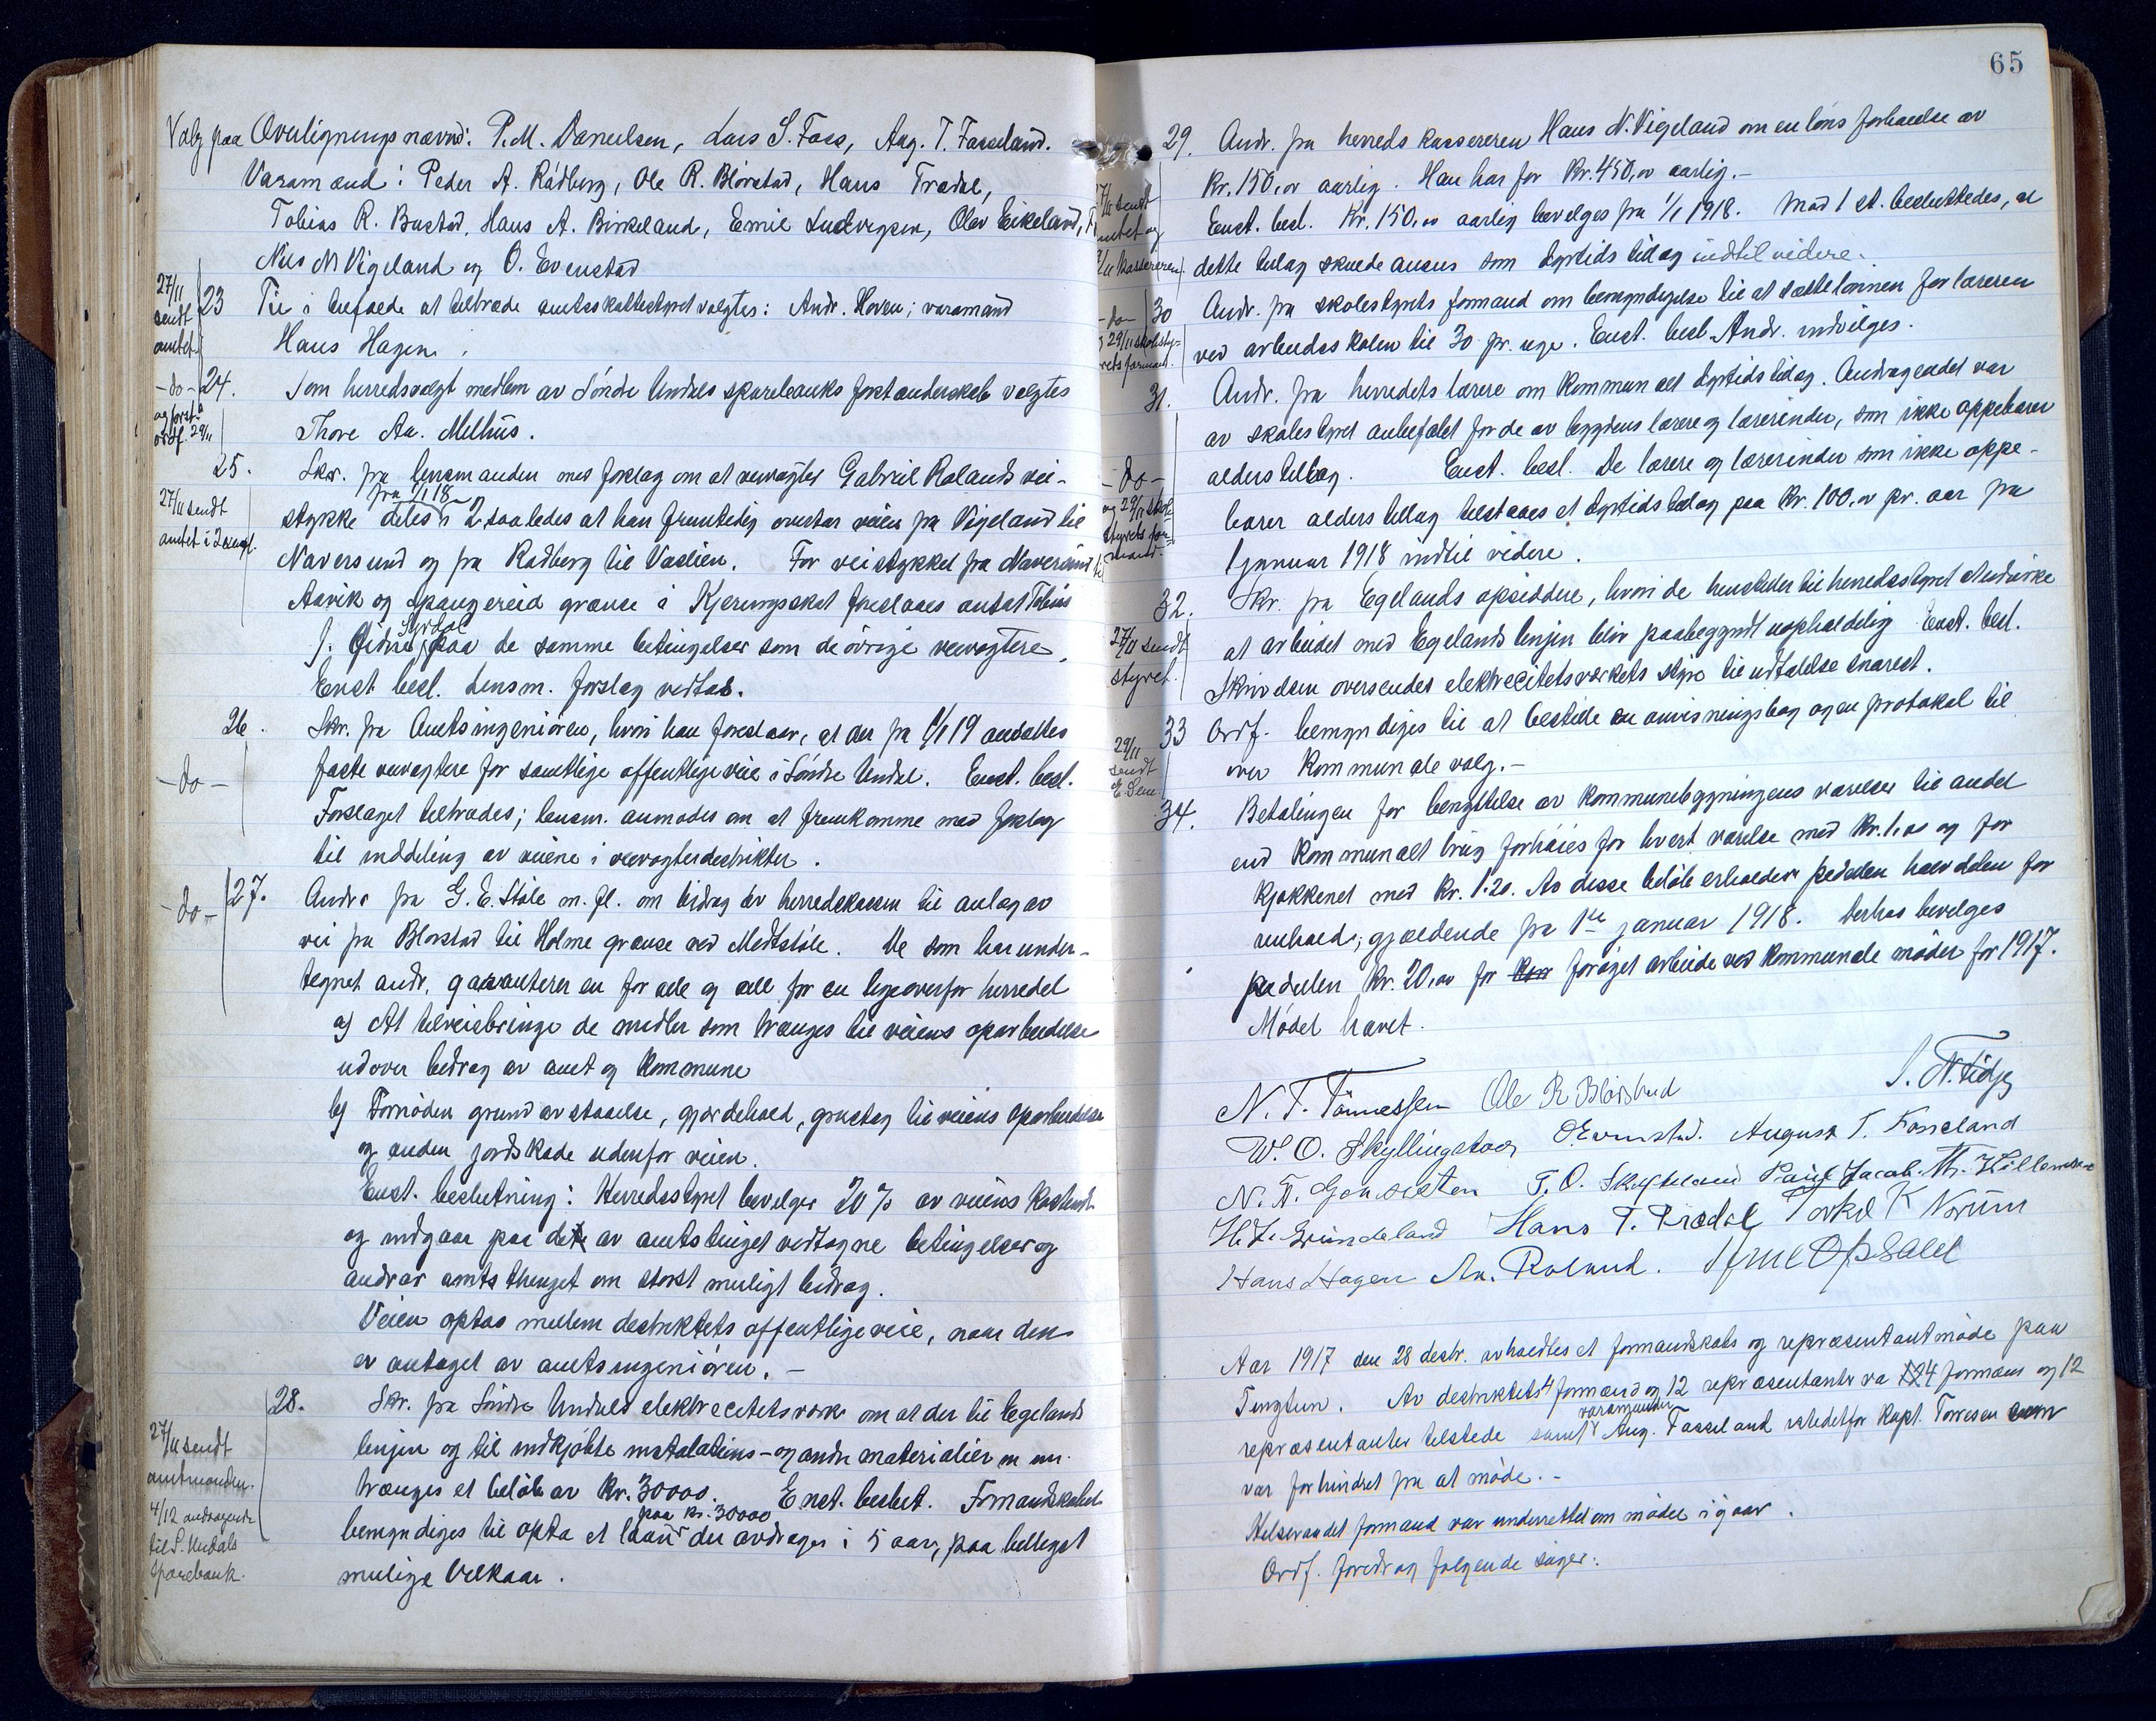 Valg paa Overligningsnævnd: P. M. Danielsen, Lars S. Foss, Aug. T. Fasseland.
Varamænd: Peder A. Rådberg, Ole R. Blörstad, Hans Trædal,
Tobias R. Bustad, Hans A. Birkeland, Emil Ludvigsen, Olav Eikeland,
Nils N Vigeland og O. Evenstad
27/11 sendt amtet
23 Til i tilfælde at tiltræde amtsskattestyret valgtes: Andr. Hoven; varamand
Hans Hagen.
-do- og forst. ordf. 29/11
24. Som herredsvalgt medlem av Söndre Undals sparebanks forstanderskab valgtes
Thore Aa. Melhus.
25. Skr. fra lensmanden med forslag om at veivogter Gabriel Rolands vei-
27/11 sendt amtet i 2 expl.
stykke fra 1/1 18 deles i 2 saaledes at han fremtidig overtar veien fra Vigeland til
Naversund og fra Rådberg til Vaslien. For veistykket fra Naversund til
Aavik og Spangereid grænse i Kjerringskat foreslaaes antat Tobias
J. Gidne Syrdal paa de samme betingelser som de övrige veivogtere.
Enst. besl. Lensm. forslag vedtas.
26. Skr. fra Amtsingeniören, hvori han foreslaar, at der fra 1/1 19 ansættes
-do-
faste veivogtere for samtlige offentlige veie i Söndre Undal. Enst. besl.
Forslaget tiltrædes; lensm. anmodes om at fremkomme med forslag
til inddeling av veiene i veivogterdistrikter.
-do-
27. Andr. fra G. E. Stöle m. fl. om bidrag av herredskassen til anlæg av
vei fra Blörstad til Holme grænse ved Midtstöle. De som har under-
tegnet andr. garanterer en for alle og alle for en ligeoverfor herredet
a) At tilveiebringe de midler som trænges til veiens oparbeidelse
udover bidrag av amt og kommune
b) Fornöden grund avstaaelse, gjærdehold, grustag til veiens oparbeidelse
og anden jordskade udenfor veien.
Enst. beslutning: Herredsstyret bevilger 20 % av veiens kostende
og indgaar paa de av amtstinget vedtagne betingelser og
andrar amtsthinget om störst muligt bidrag.
Veien optas mellem distriktets offentlige veie, naar den
er antaget av amtsingeniören. -
28. Skr. fra Söndre Undals elektrecitetsverk om at der til Egelands
27/11 sendt amtmanden. 4/12 andragende til S. Undals sparebank.
linjen og til indkjöbte instalations- og andre materialier m. m.
trænges et belöb av Kr. 30000. Enst. beslut. Formandskabet
bemyndiges til opta et laan paa kr. 30000 der avdrages i 5 aar, paa billigst
mulige vilkaar.
65
29. Andr. fra herreds kassereren Hans N. Vigeland om en löns forhöielse av
Kr. 150,00 aarlig. Han har för Kr. 450,00 aarlig. -
27/11 sendt amtet og 29/11 kassereren.
Enst. besl. Kr. 150,00 aarlig bevilges fra 1/1 1918. Mod 1 st. besluttedes, at
dette tillæg skulde ansees som dyrtids tillæg indtil videre.
-do- og 29/11 skolesty- rets formand.
30 Andr. fra skolestyrets formand om bemyndigelse til at sætte lönnen for læreren
ved arbeidsskolen til 30 pr. uge. Enst. besl. Andr. indvilges.
31. Andr. fra herredets lærere om kommunalt dyrtidstillæg. Andragendet var
av skolestyret anbefalet for de av bygdens lærere og lærerinder, som ikke oppebærer
alderstillæg. Enst. besl. De lærere og lærerinder som ikke oppe-
-do- og 29/11 skole- styrets for- mand
bærer alderstillæg tilstaaes et dyrtidstillæg paa Kr. 100,00 pr. aar fra
1 januar 1918 indtil videre.
32. Skr. fra Egelands opsiddere, hvori de henstiller til herredsstyret at indvirke
27/11 sendt styret.
at arbeidet med Egelands linjen blir paabegyndt uopholdelig. Enst. besl.
Skrivelsen oversendes elektrecitetsverkets styre til udtalelse snarest.
33 Ordf. bemyndiges til at bestille en anvisningsbog og en protokol til
29/11 sendt E. Sem
over kommunale valg. -
34. Betalingen for benyttelse av kommunebygningens værelser til andet
end kommunalt brug forhöies for hvert værelse med Kr. 1,00 og for
kjökkenet med Kr. 1.20. Av disse belöb erholder pedellen halvdelen for
renhold; gjældende fra 1ste januar 1918. Derhos bevilges
pedellen Kr. 20,00 for foröget arbeide ved kommunale möder for 1917.
Mödet hævet.
N. T. Tönnessen Ole R Blörstad S. N. Fidje
W. O. Skyllingstad O. Evenstad. August T. Fasseland
N. N. Gonsisten T. O. Skeftesen Paul Jacob. Th. Willemsen
H. L. Svindeland Hans T. Trædal Torkel K Norum
Hans Hagen An. Roland. Arne Opsahl
Aar 1917 den 28 desbr. avholdtes et formandskabs og repræsentantmöde paa
Tingtun. Av distriktets 4 formænd og 12 repræsentanter va 4 formæn og 12
repræsentanter tilstede samt varamanden Aug. Fasseland istedetfor kapt. Torresen som
var forhindret fra at möde. -
Helseraadets formand var underrettet om mödet igaar.
Ordf. foredrog fölgende sager: